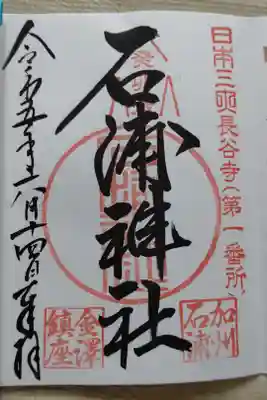 日本三所長谷寺(第一番所)
加州
石浦
石浦神社
金澤
鎮座
令和五年八月十四日奉拝